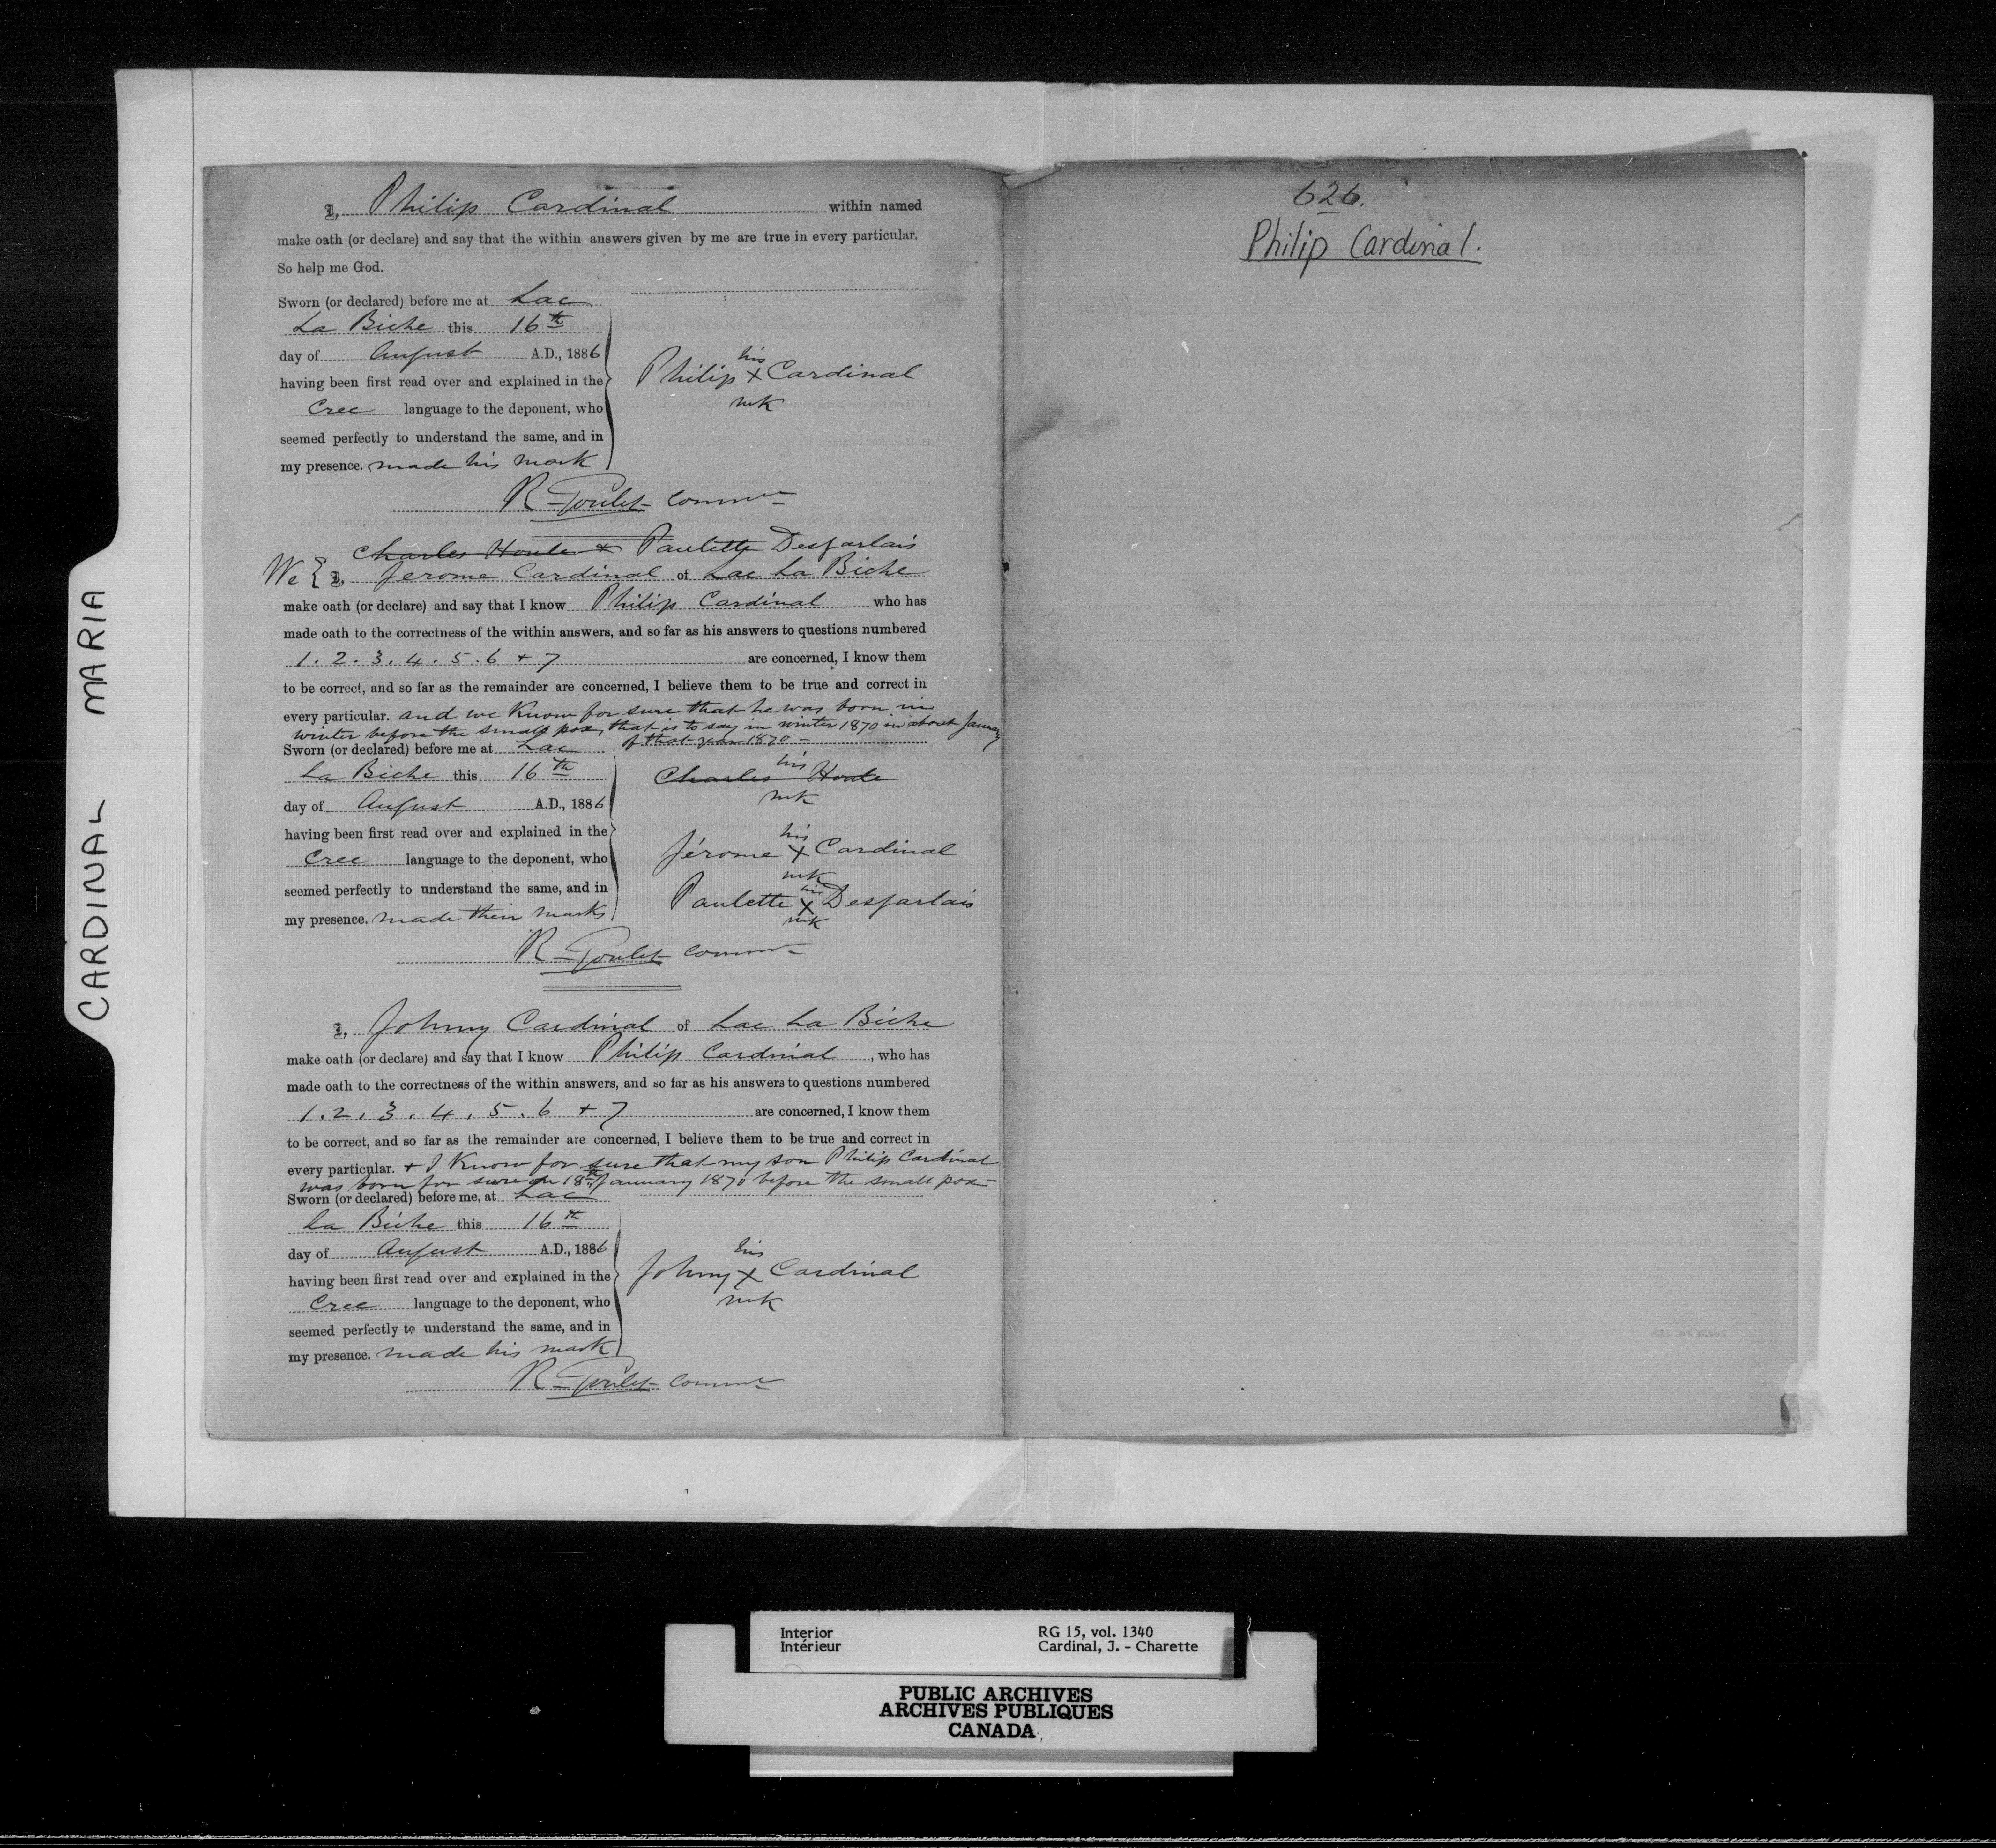 I, Philip Cardinal within named
make oath (or declare) and say that the within answers given by me are true in every particular.
So help me God.
Sworn (or declared) before me at Lac
La Biche this 16th
day of August A.D., 1886
having been first read over and explained in the
Cree language to the deponent, who
seemed perfectly to understand the same, and in
my presence. made his mark
his
Philip X Cardinal
mk
R Goulet Commr
Charles Houle + Paulette Desjarlais
We { I, Jerome Cardinal of Lac La Biche
make oath (or declare) and say that I know Philip Cardinal who has
made oath to the correctness of the within answers, and so far as his answers to questions numbered
1. 2. 3. 4. 5. 6 + 7 are concerned, I know them
to be correct, and so far as the remainder are concerned, I believe them to be true and correct in
every particular. and we Know for sure that he was born in
winter before the small pox, that is to say in winter 1870 in about January
of that year 1870 -
Sworn (or declared) before me at Lac
La Biche this 16th
day of August A.D., 1886
having been first read over and explained in the
Cree language to the deponent, who
seemed perfectly to understand the same, and in
my presence. made their marks
his
Charles Houle
mk
his
Jérome X Cardinal
mk
his
Paulette X Desjarlais
mk
R Goulet Commr
I, Johnny Cardinal of Lac La Biche
make oath (or declare) and say that I know Philip Cardinal, who has
made oath to the correctness of the within answers, and so far as his answers to questions numbered
1. 2. 3. 4. 5. 6 + 7 are concerned, I know them
to be correct, and so far as the remainder are concerned, I believe them to be true and correct in
every particular. + I Know for sure that my son Philip Cardinal
was born for sure on 18th January 1870 before the small pox -
Sworn (or declared) before me, at Lac
La Biche this 16th
day of August A.D., 1886
having been first read over and explained in the
Cree language to the deponent, who
seemed perfectly to understand the same, and in
my presence. made his mark
his
Johnny X Cardinal
mk
R Goulet Commr
626.
Philip Cardinal.
CARDINAL MARIA
Interior
Intérieur
RG 15, vol. 1340
Cardinal, J. - Charette
PUBLIC ARCHIVES
ARCHIVES PUBLIQUES
CANADA